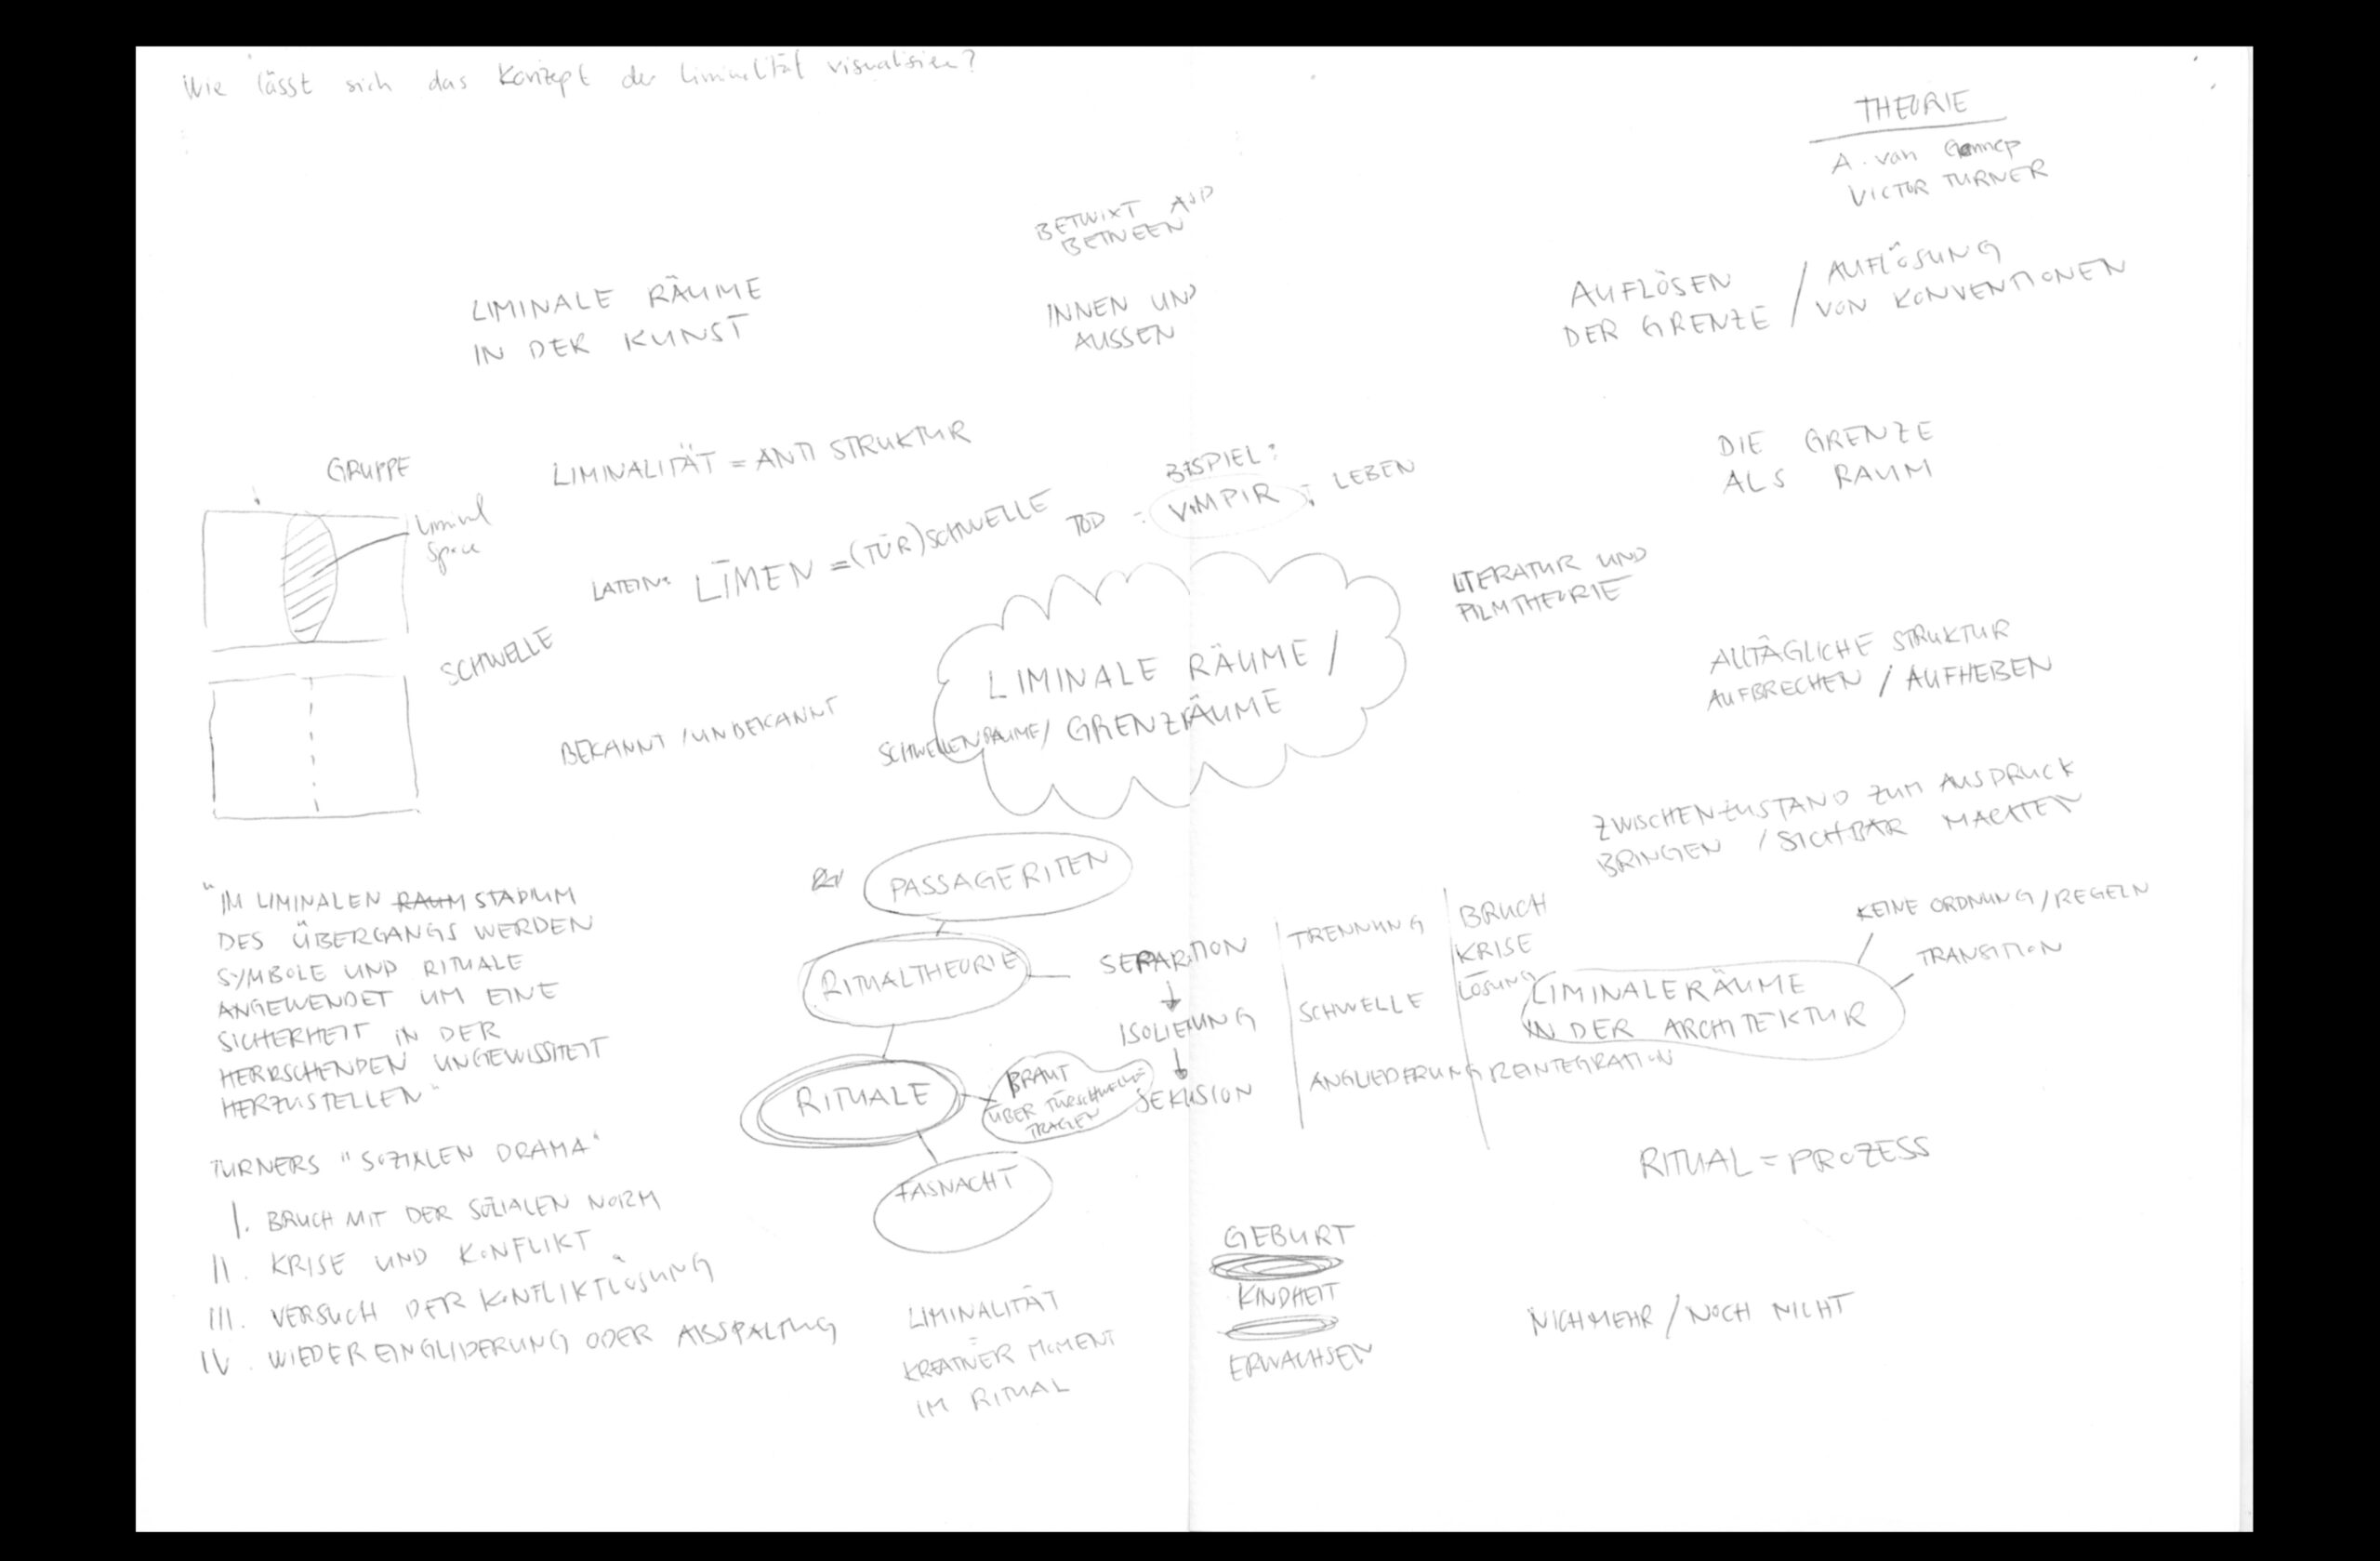 Wie lässt sich das Konzept der Liminalität visualisieren?
THEORIE
A. van Gennep
VICTOR TURNER
BETWIXT AND
BETWEEN
LIMINALE RÄUME
IN DER KUNST
INNEN UND
AUSSEN
AUFLÖSEN
DER GRENZE /
AUFLÖSUNG
VON KONVENTIONEN
GRUPPE
LIMINALITÄT = ANTI STRUKTUR
DIE GRENZE
ALS RAUM
Liminal
Space
BEISPIEL:
TOD : VAMPIR : LEBEN
LATEIN: LĪMEN = (TÜR)SCHWELLE
LITERATUR UND
FILMTHEORIE
SCHWELLE
ALLTÄGLICHE STRUKTUR
AUFBRECHEN / AUFHEBEN
LIMINALE RÄUME /
SCHWELLENRÄUME / GRENZRÄUME
BEKANNT / UNBEKANNT
ZWISCHENZUSTAND ZUM AUSDRUCK
BRINGEN / SICHBAR MACHEN
PASSAGERITEN
RITUALTHEORIE
RITUALE
BRAUT
ÜBER TÜRSCHWELLE
TRAGEN
FASNACHT
SEPARATION
ISOLIERUNG
SEKUSION
TRENNUNG
SCHWELLE
ANGLIEDERUNG
BRUCH
KRISE
LÖSUNG
REINTEGRATION
LIMINALE RÄUME
IN DER ARCHITEKTUR
KEINE ORDNUNG / REGELN
TRANSITION
"IM LIMINALEN RAUM STADIUM
DES ÜBERGANGS WERDEN
SYMBOLE UND RITUALE
ANGEWENDET UM EINE
SICHERHEIT IN DER
HERRSCHENDEN UNGEWISSHEIT
HERZUSTELLEN"
TURNERS "SOZIALEN DRAMA"
I. BRUCH MIT DER SOZIALEN NORM
II. KRISE UND KONFLIKT
III. VERSUCH DER KONFLIKTLÖSUNG
IV. WIEDEREINGLIDERUNG ODER ABSPALTUNG
RITUAL = PROZESS
LIMINALITÄT
=
KREATIVER MOMENT
IM RITUAL
GEBURT
KINDHEIT
ERWACHSEN
NICHMEHR / NOCH NICHT